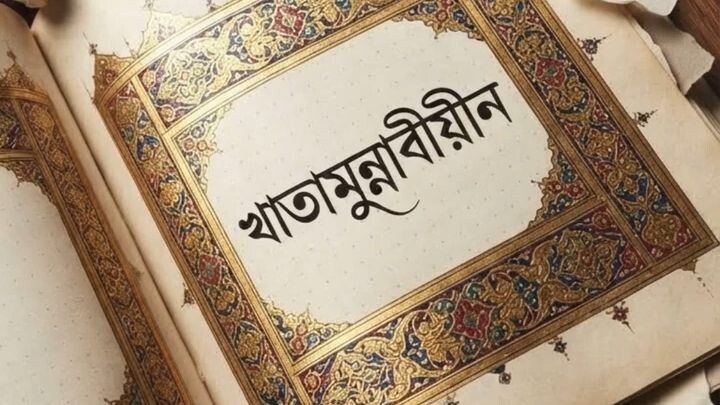 খাতামুন্নাবীয়ীন